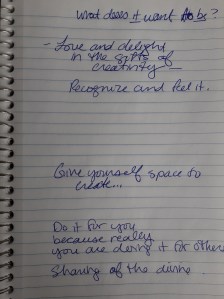 What does it want to be?
- Love and delight
in the gifts of
creativity
Recognize and feel it.
Give yourself space to
create...
Do it for you
because really
you are doing it for others
Sharing of the divine